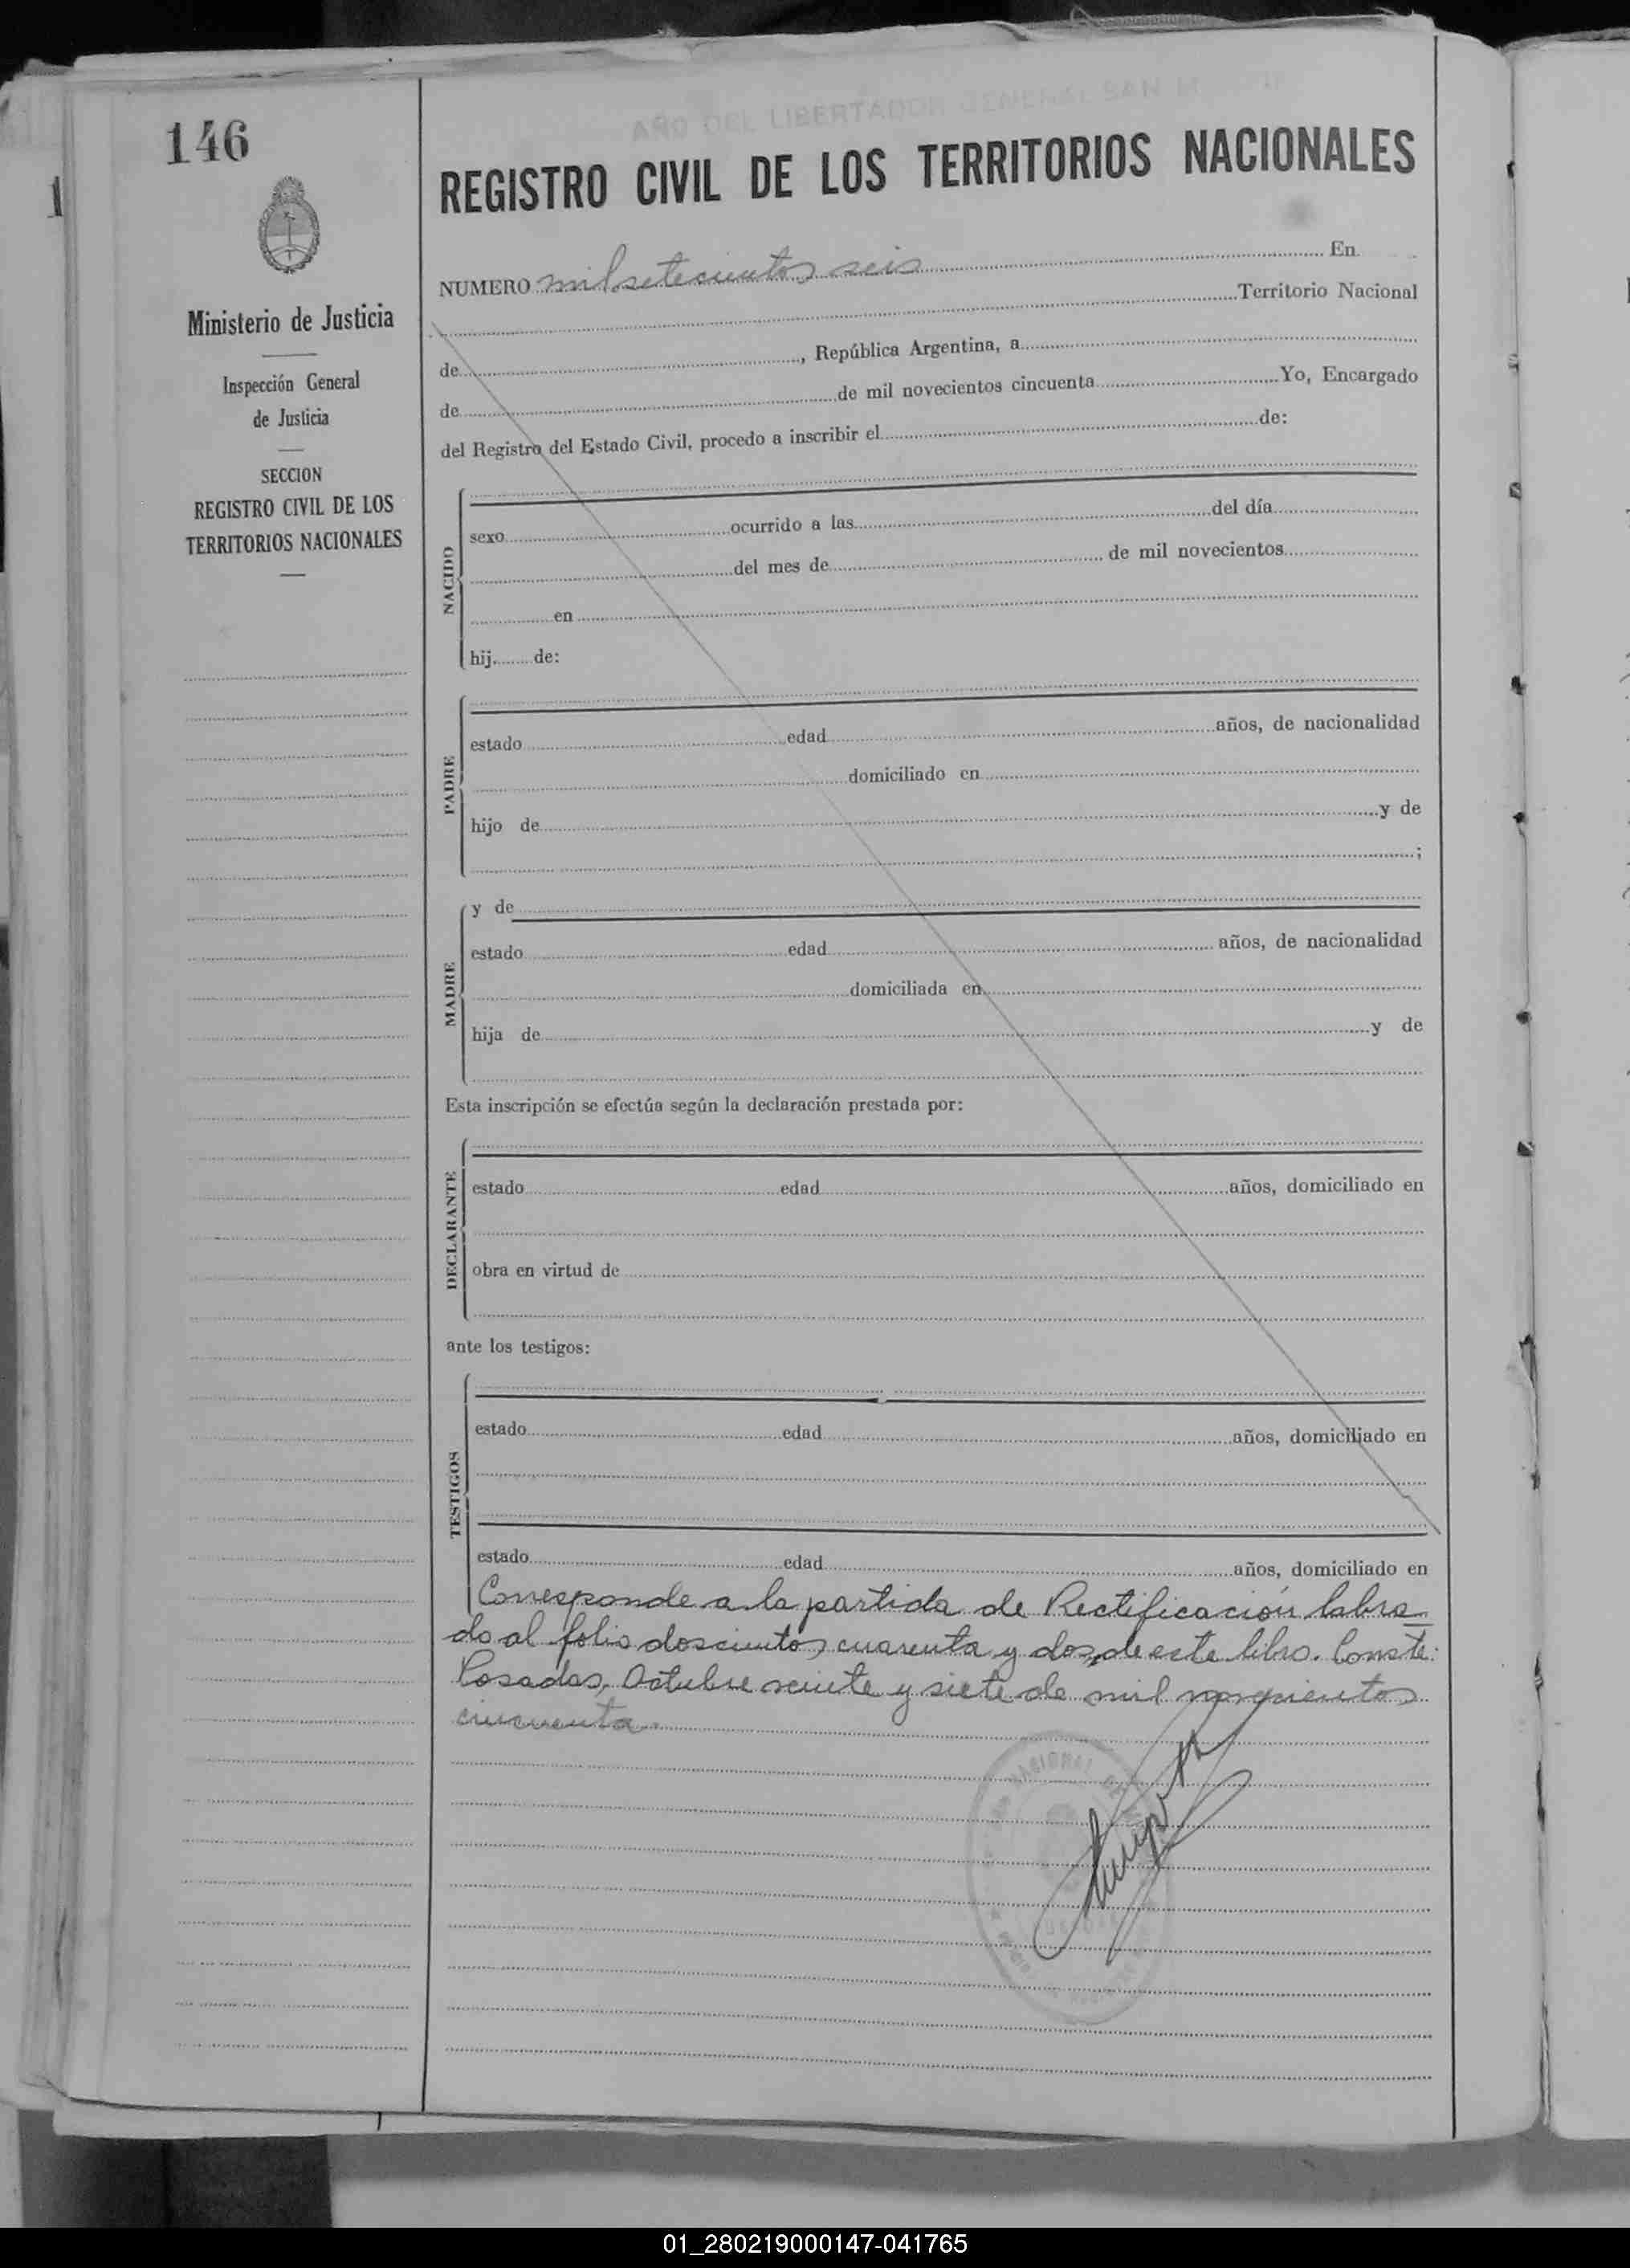 AÑO DEL LIBERTADOR GENERAL SAN
146
REGISTRO CIVIL DE LOS TERRITORIOS NACIONALES
Ministerio de Justicia
Inspección General
de Justicia
SECCION
REGISTRO CIVIL DE LOS
TERRITORIOS NACIONALES
NUMERO mil setecientos seis En
Territorio Nacional
de , República Argentina, a
de de mil novecientos cincuenta Yo, Encargado
del Registro del Estado Civil, procedo a inscribir el de:
NACIDO
sexo ocurrido a las del día
del mes de de mil novecientos
en
hij de:
PADRE
estado edad años, de nacionalidad
domiciliado en
hijo de y de
;
MADRE
y de
estado edad años, de nacionalidad
domiciliada en
hija de y de
Esta inscripción se efectúa según la declaración prestada por:
DECLARANTE
estado edad años, domiciliado en
obra en virtud de
ante los testigos:
TESTIGOS
estado edad años, domiciliado en
estado edad años, domiciliado en
Corresponde a la partida de Rectificación labra
do al folio doscientos cuarenta y dos, de este libro. Conste.
Posadas, Octubre veinte y siete de mil novecientos
cincuenta.
NACIONAL
01_280219000147-041765